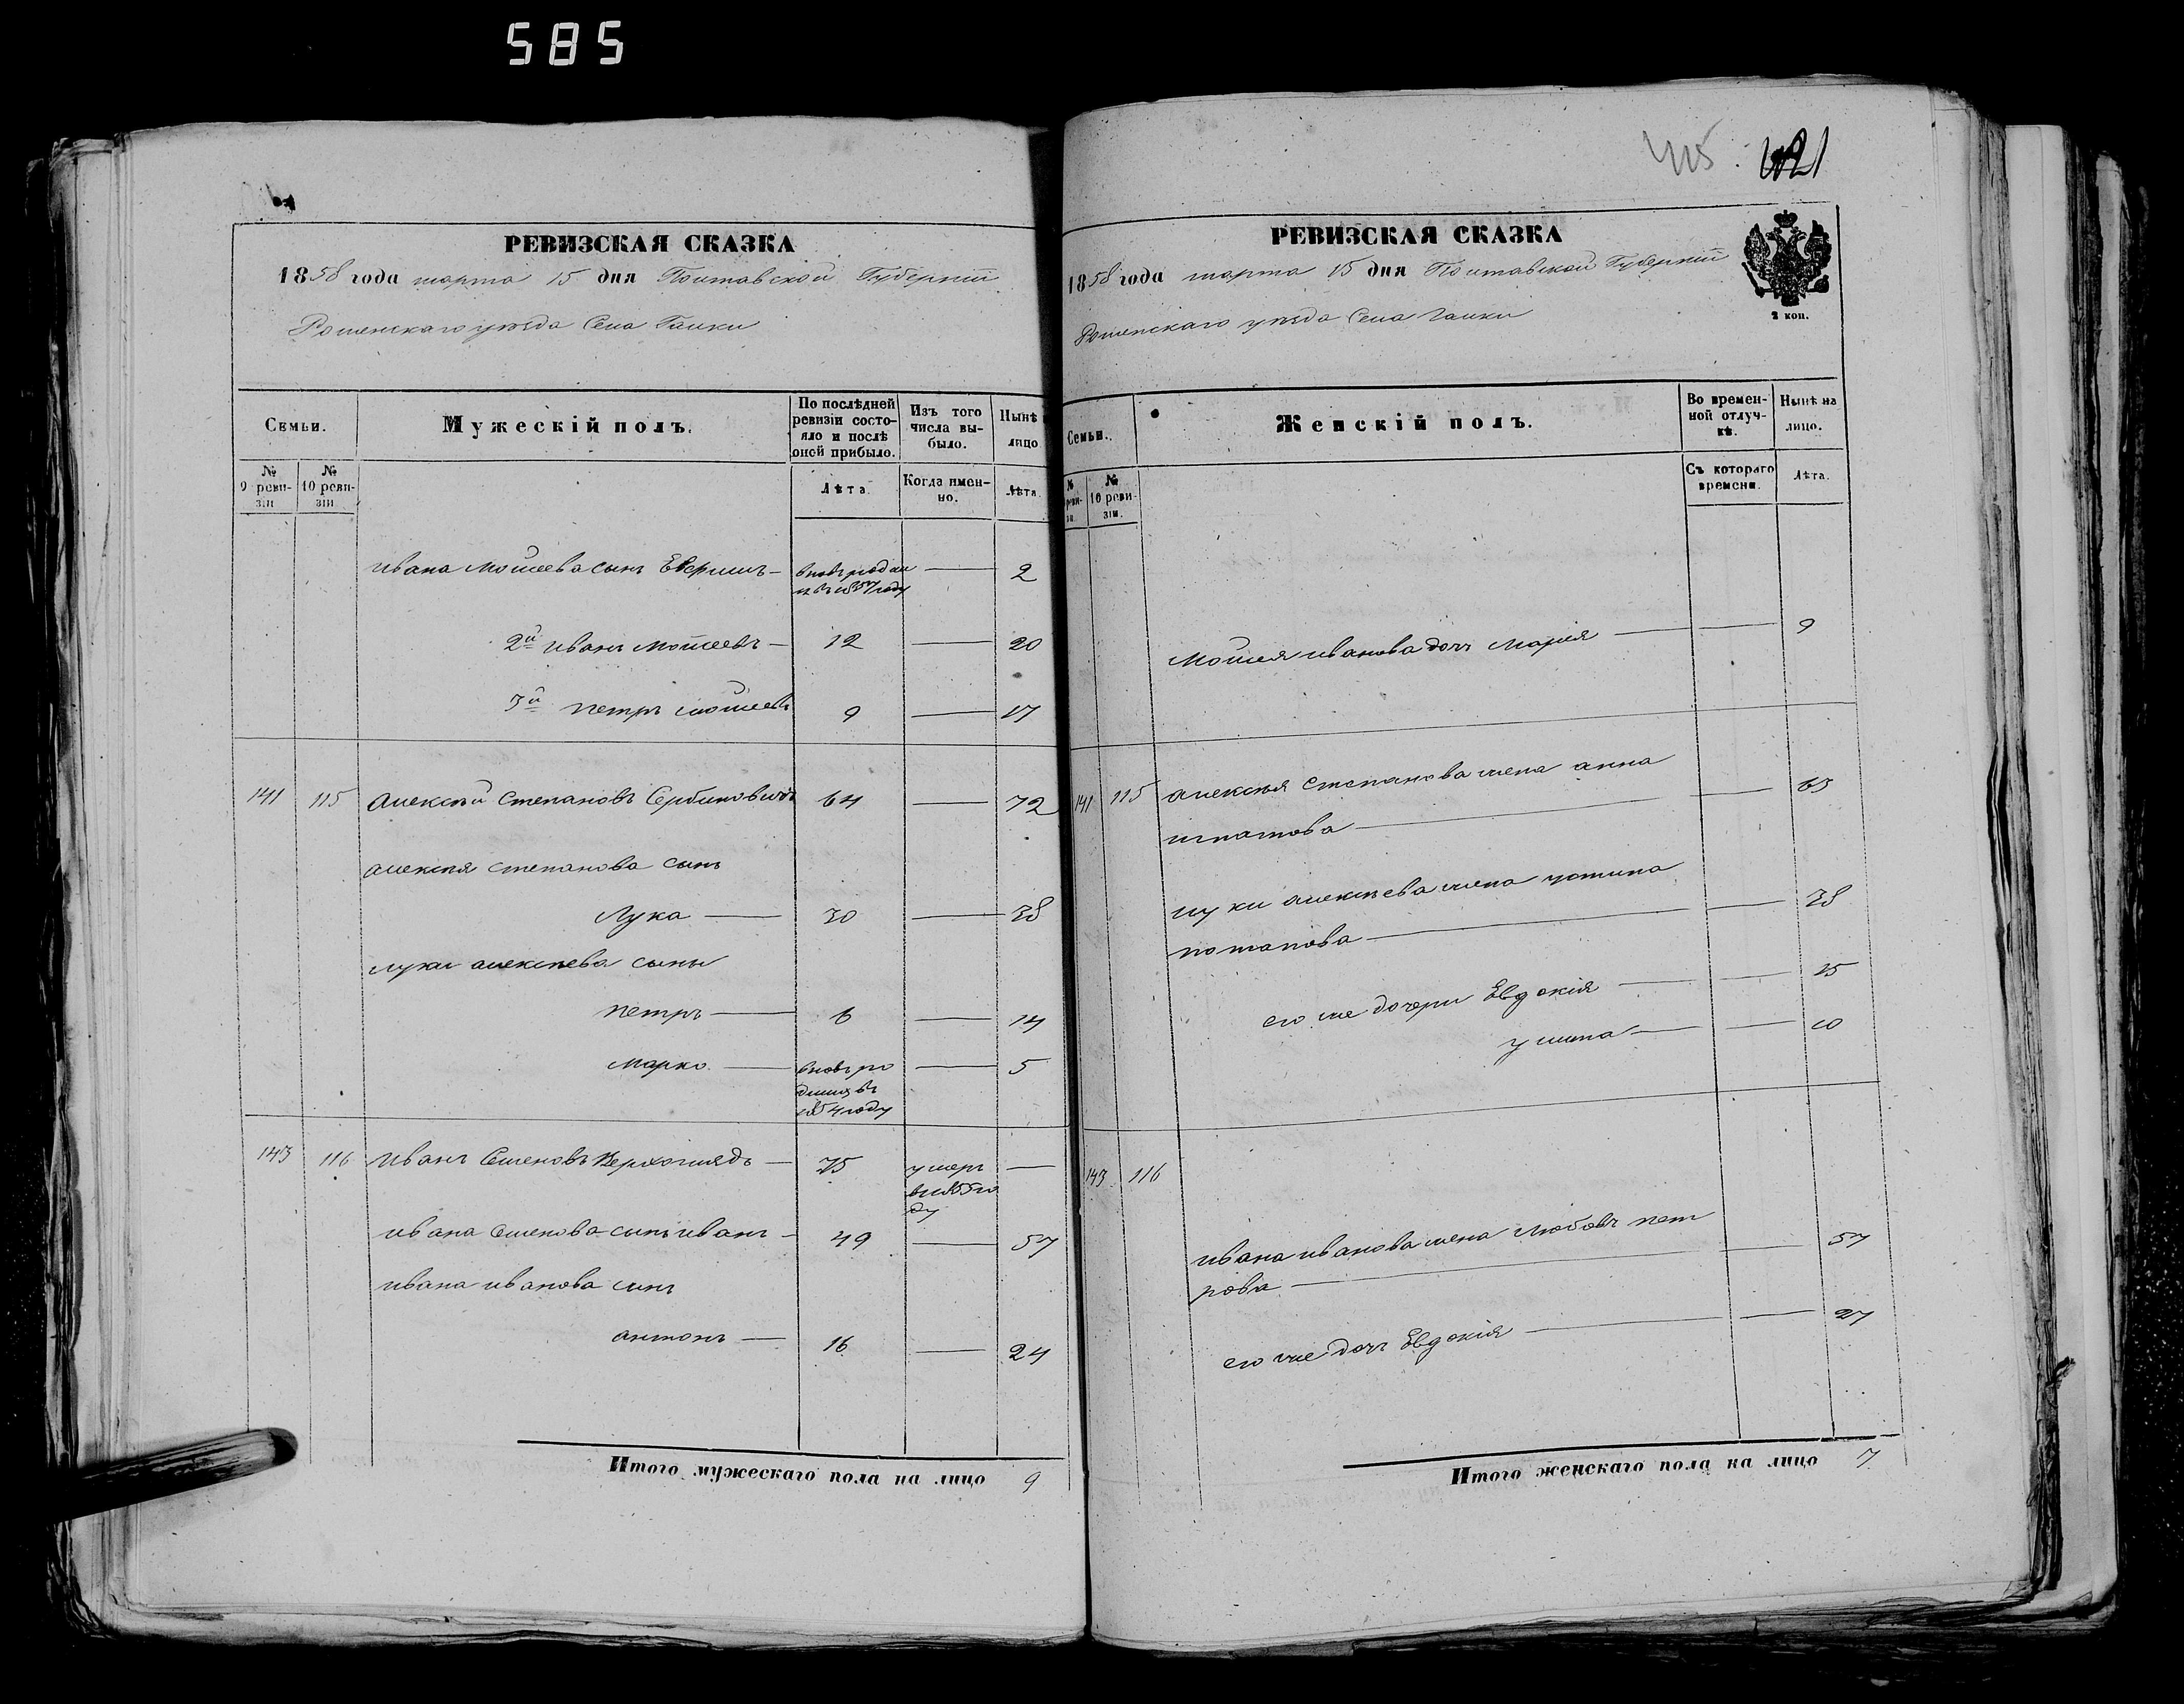 585
415. 421
РЕВИЗСКАЯ СКАЗКА
1858 года марта 15 дня Полтавской Губерніи
Роменскаго уѣзда Села Галки
Семьи.
Мужескій полъ.
По послѣдней ревизіи состояло и послѣ оной прибыло.
Изъ того числа выбыло.
Нынѣ лицо
№ 9 ревизіи
№ 10 ревизіи
Лѣта.
Когда именно.
Лѣта
Ивана Мойсеева сынъ — 2
2й Иванъ Мойсеевъ — 12 — 20
3й Петръ Мойсеевъ 9 — 17
141 115 Алексѣй Степановъ Сербиновичъ 64 — 72
Алексѣя Степанова сынъ
Лука — 30 — 38
Луки Алексѣева сыны
Петръ — 6 — 14
Марко — вновь ро — 5
дился въ
1854 году
143 116 Иванъ Семеновъ Верхоглядъ — 75 умеръ —
в 1855 го
ду
Ивана Семенова сынъ Иванъ — 49 — 57
Ивана Иванова сынъ
Антонъ — 16 — 24
Итого мужескаго пола на лицо 9
РЕВИЗСКАЯ СКАЗКА
1858 года марта 15 дня Полтавской Губерніи
2 коп.
Роменскаго уѣзда Села Галки
Семьи.
Женскій полъ.
Во временной отлучкѣ.
Нынѣ на лицо.
№ 10 ревизіи.
Съ котораго времени.
Лѣта.
Мойсея Иванова дочь Марія — — 9
141 115 Алексѣя Степанова жена Анна
Игнатова — — 65
Луки Алексѣева жена Устина
Потапова — — 38
его же дочери Евдокія — — 15
Улита — — 10
143 116
Ивана Иванова жена Любовь Пет
рова — — 57
его же дочь Евдокія — — 27
Итого женскаго пола на лицо 7